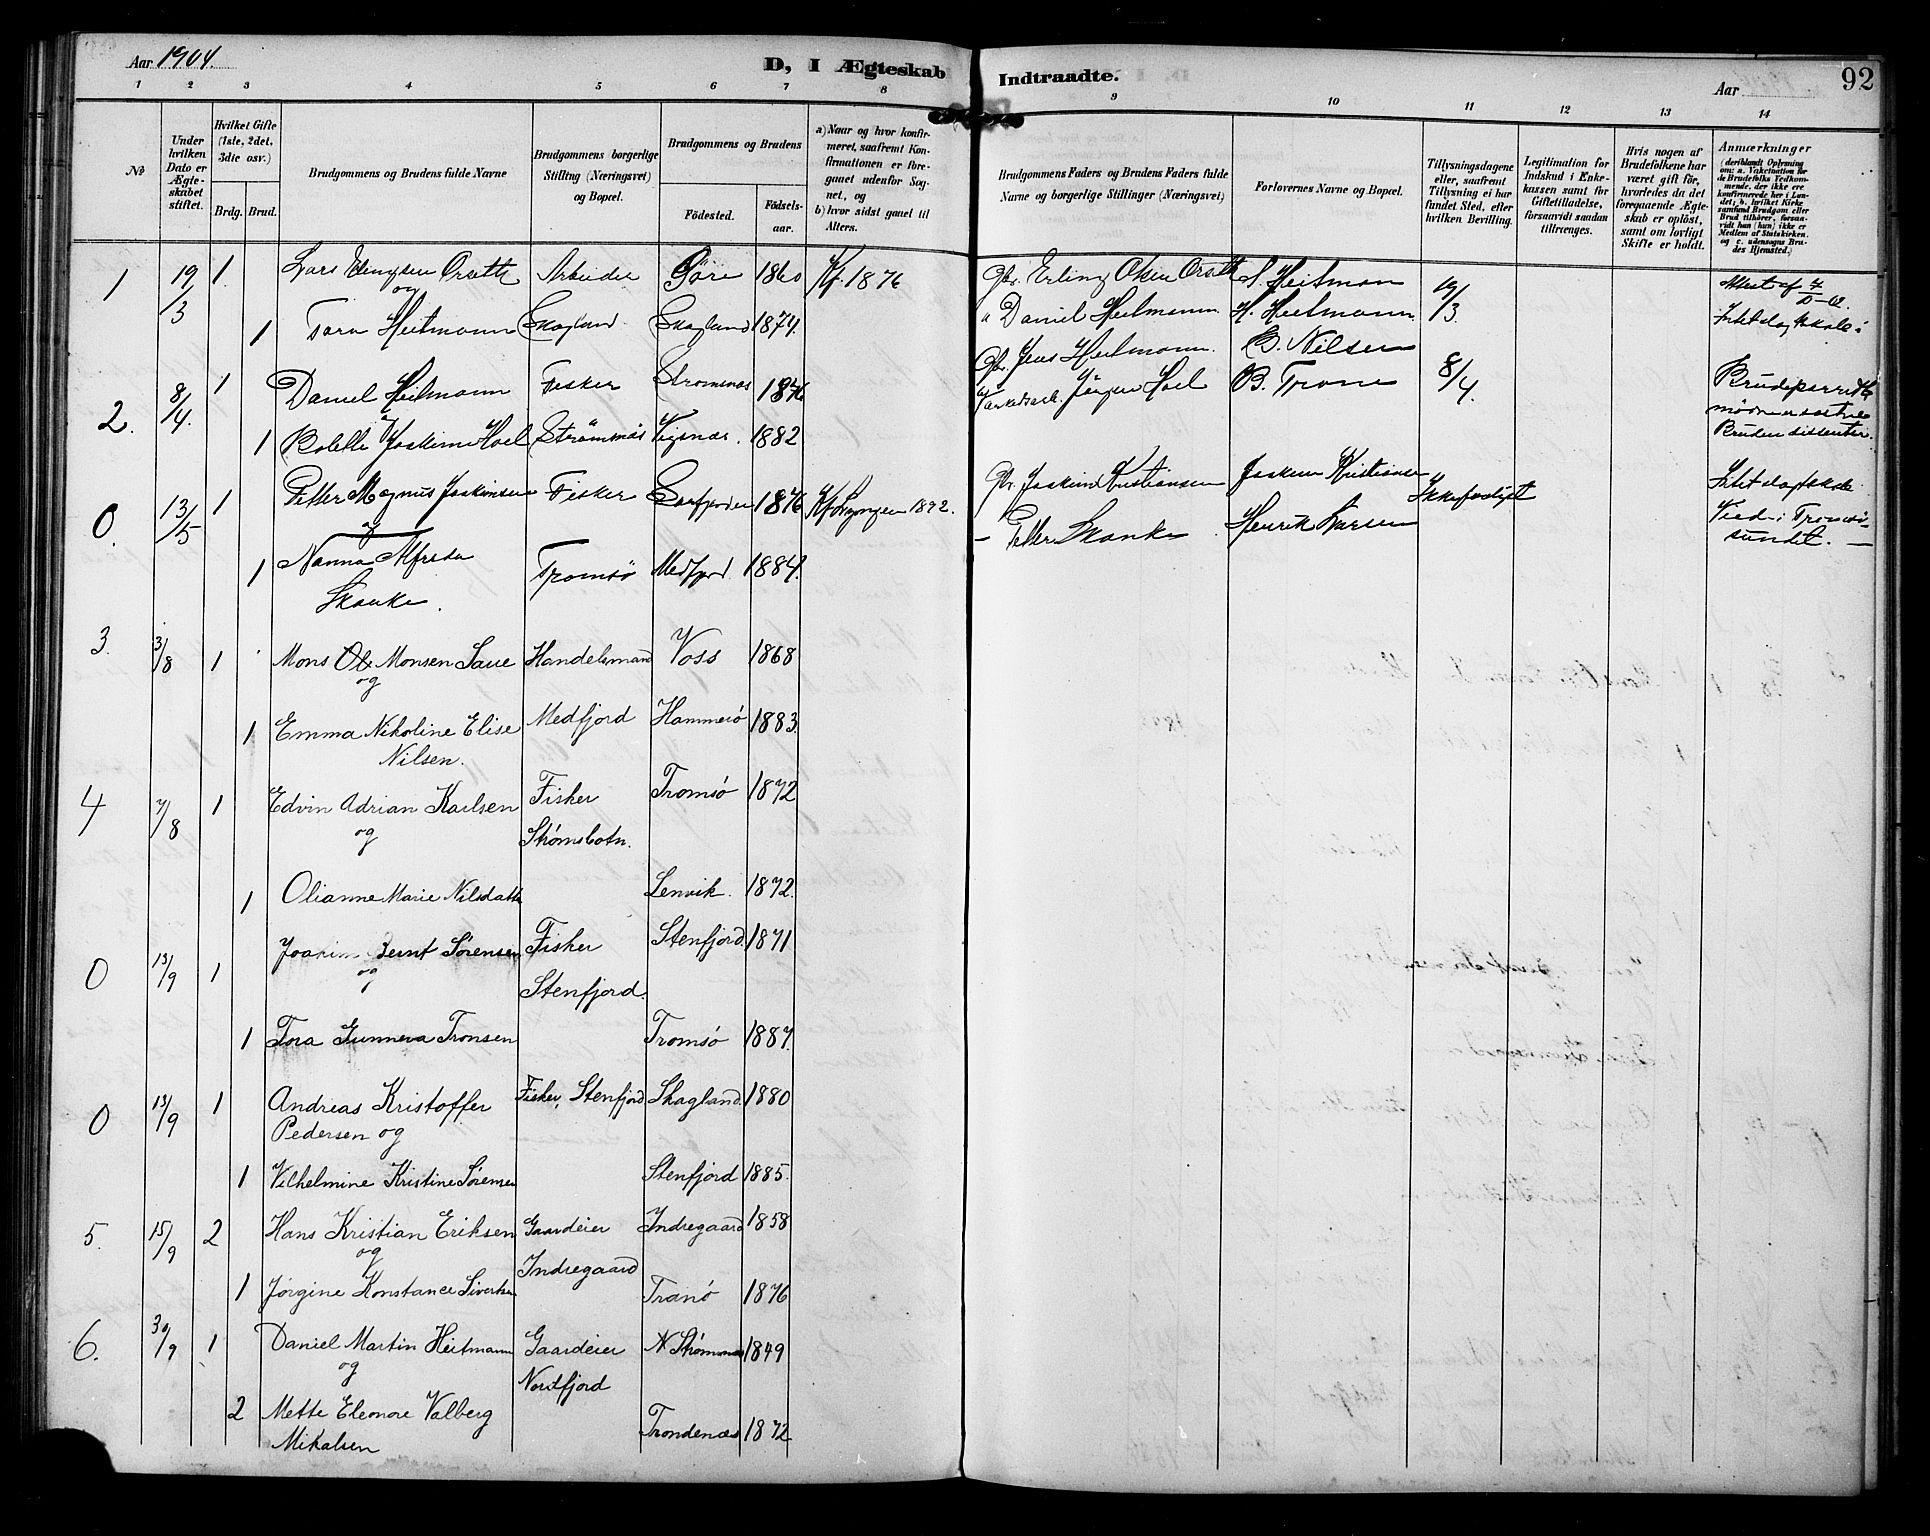 Aar 1904.
D, I Ægteskab Indtraadte.
Aar
92
1 2 3 4 5 6 7 8 9 10 11 12 13 14
No
Under hvilken Dato er Ægteskabet stiftet.
Hvilket Gifte (1ste, 2det, 3die osv.)
Brdg. Brud.
Brudgommens og Brudens fulde Navne
Brudgommens borgerlige Stilling (Næringsvei) og Bopæl.
Brudgommens og Brudens
Födested.
Födselsaar.
a) Naar og hvor konfirmeret, saafremt Konfirmationen er foregaaet udenfor Sognet, og
b) hvor sidst gaaet til Alters.
Brudgommens Faders og Brudens Faders fulde Navne og borgerlige Stillinger (Næringsvei)
Forlovernes Navne og Bopæl.
Tillysningsdagene eller, saafremt Tillysning ei har fundet Sted, efter hvilken Bevilling.
Legitimation for Indskud i Enkekassen samt for Giftetilladelse, forsaavidt saadan tiltrænges.
Hvis nogen af Brudefolkene har været gift för, hvorledes da det foregaaende Ægteskab er oplöst, samt om lovligt Skifte er holdt.
Anmærkninger
(deriblandt Oplysning om: a. Vakcination for de Brudefolks Vedkommende, der ikke ere konfirmerede her i Landet; b. hvilket Kirkesamfund Brudgom eller Brud tilhører, forsaavidt han (hun) ikke er Medlem af Statskirken, og c. udensogns Brudes Hjemsted.)
1 19/3 1 Lars Elingsen Orseth Arbeider 1860 Kf. 1876 Erling Olsen Orseth Heitman 19/3 Attest af
og
1 Heitmann Skagland. Skagland 1874. Daniel Heitmann H. Heitmann
2. 8/4. 1 Daniel Heitmann Fisker Strømsnes 1876 Gbr. Jens Heitmann. B. Nilsen 8/4. Brudeparret
Jørgen Hoel B. Trone
1 Bolette Joakime Hoel Strømsnes 1882 Bruden dissenter.
0. 13/5 1 Petter Magnus Joakimsen Fisker 1876 Kf. Lyngen 1892. Gbr. Joakim Kristiansen Joakim Kristiansen
og
1 Nanna Alfrida Tromsø Medfjord 1884. Petter Skanke Henrik Larsen Viede i Tromsø-
Skanke. sundet.
3. 3/8 1 Mons Ole Monsen Saue Handelsmand Voss 1868
og
1 Emma Nikoline Elise Medfjord Hammerø 1883.
Nilsen.
4 7/8 1 Edvin Adrian Karlsen Fisker Tromsø 1872
og Strømsbotn.
1 Olianne Marie Nilsdatter Lenvik. 1872.
0 13/9 1 Joakim Bernt Sørensen Fisker Stenfjord. 1871
og Stenfjord.
1 Tora Gunneva Tronsen Tromsø 1887.
0 13/9 1 Andreas Kristoffer Fisker, Stenfjord Skagland. 1880
Pedersen og
1 Vilhelmine Kristine Sørensen Stenfjord 1885.
5. 15/9 2 Hans Kristian Eriksen Gaardeier Indregaard 1858
og Indregaard
1 Jørgine Konstance Sivertsen Tranø 1876
6. 30/9 1 Daniel Martin Heitmann Gaardeier N Strømsnes 1849
og Nordfjord
2 Mette Eleonore Valberg Trondenæs 1872
Mikalsen